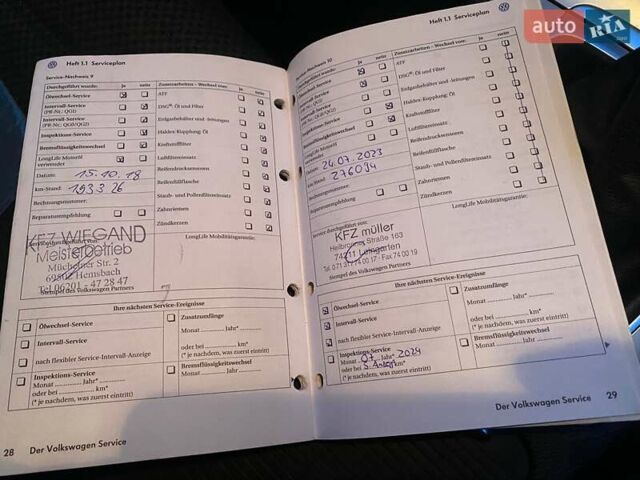 Heft 1.1 Serviceplan
Service-Nachweis 9
Durchgeführt wurde: ja nein
Zusatzarbeiten - Wechsel von: ja nein
Ölwechsel-Service
ATF
Intervall-Service
(PR-Nr.: QG1)
DSG®: Öl und Filter
Intervall-Service
(PR-Nr.: QG0/QG2)
Erdgasbehälter und -leitungen
Inspektions-Service
Haldex-Kupplung: Öl
Bremsflüssigkeitswechsel
Kraftstofffilter
LongLife Motoröl
verwendet
Luftfiltereinsatz
Reifendruckensoren
Datum: 15.10.18
Reifenfüllflasche
km-Stand: 193326
Staub- und Pollenfiltereinsatz
Rechnungsnummer:
Zahnriemen
Reparaturempfehlung
Zündkerzen
Service durchgeführt von:
LongLife Mobilitätsgarantie:
KFZ WIEGAND
Meisterbetrieb
Müchelner Str. 2
69502 Hemsbach
Tel 06201 - 47 28 47
Stempel des Volkswagen Partners
Ihre nächsten Service-Ereignisse
Ölwechsel-Service
Intervall-Service
nach flexibler Service-Intervall-Anzeige
Inspektions-Service
Monat ............ Jahr*
oder bei ............ km*
(* je nachdem, was zuerst eintritt)
Zusatzumfänge
Monat ............ Jahr*
oder bei ............ km*
(* je nachdem, was zuerst eintritt)
Bremsflüssigkeitswechsel
Monat ............ Jahr
28 Der Volkswagen Service
Heft 1.1 Serviceplan
Service-Nachweis 10
Durchgeführt wurde: ja nein
Zusatzarbeiten - Wechsel von: ja nein
Ölwechsel-Service
ATF
Intervall-Service
(PR-Nr.: QG1)
DSG®: Öl und Filter
Intervall-Service
(PR-Nr.: QG0/QG2)
Erdgasbehälter und -leitungen
Inspektions-Service
Haldex-Kupplung: Öl
Bremsflüssigkeitswechsel
Kraftstofffilter
LongLife Motoröl
verwendet
Luftfiltereinsatz
Reifendrucksensoren
Datum: 24.07.2023
Reifenfüllflasche
km-Stand: 276094
Staub- und Pollenfiltereinsatz
Rechnungsnummer:
Zahnriemen
Reparaturempfehlung
Zündkerzen
Service durchgeführt von:
LongLife Mobilitätsgarantie:
KFZ müller
Heilbronner Straße 163
74211 Leingarten
Stempel des Volkswagen Partners
Ihre nächsten Service-Ereignisse
Ölwechsel-Service
Intervall-Service
nach flexibler Service-Intervall-Anzeige
Inspektions-Service
Monat 07 Jahr* 2024
oder bei S. Anzeige km*
(* je nachdem, was zuerst eintritt)
Zusatzumfänge
Monat ............ Jahr*
oder bei ............ km*
(* je nachdem, was zuerst eintritt)
Bremsflüssigkeitswechsel
Monat ............ Jahr
Der Volkswagen Service 29
auto RIA
.com